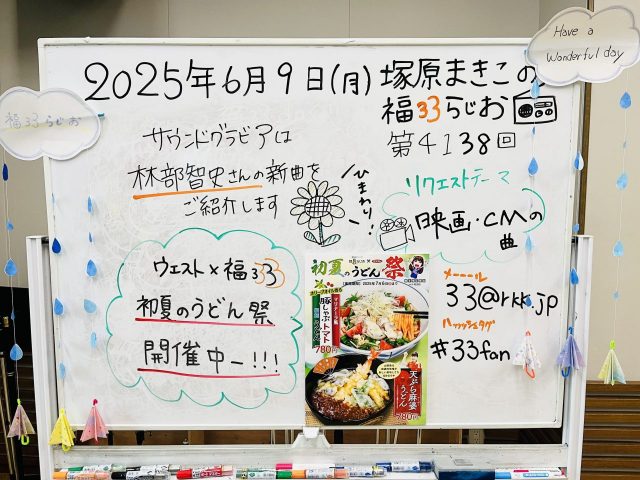 Have a
Wonderful day
福33らじお
2025年6月9日(月)塚原まきこの
福33らじお
第4138回
サウンドグラビアは
林部智史さんの新曲を
ご紹介します
ひまわり!
リクエストテーマ
映画・CMの
曲
ウエスト×福333
初夏のうどん祭
開催中ー!!!
メーーール
33@rkk.jp
ハッシュタグ
#33fan
初夏のうどん祭
豚しゃぶトマト
780円
天ぷら麻婆
うどん
780円